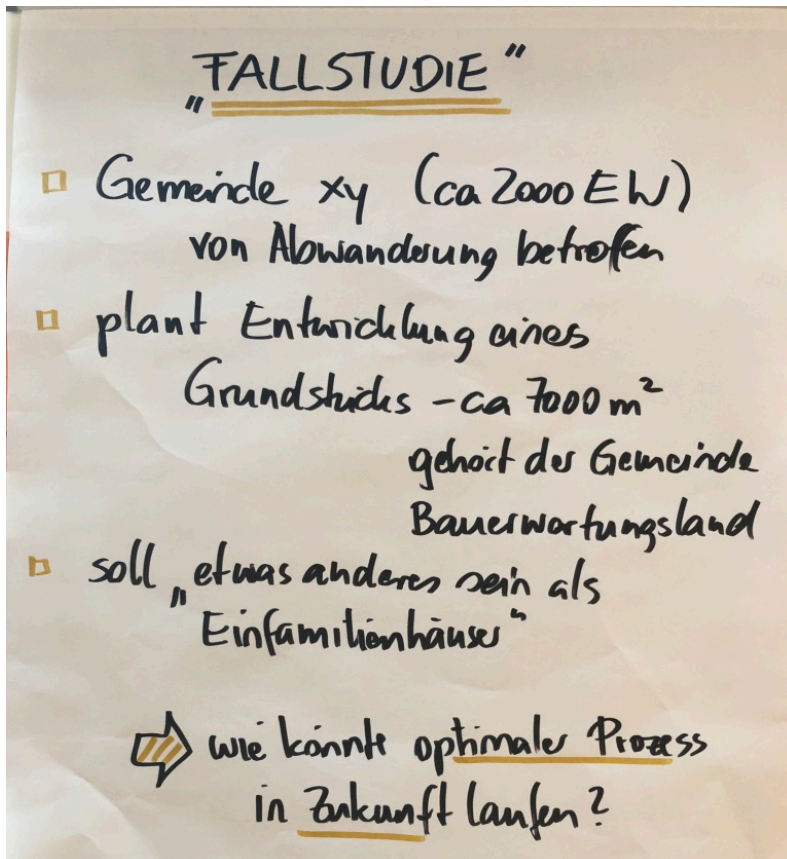 „FALLSTUDIE"
Gemeinde xy (ca 2000 EW)
von Abwanderung betroffen
plant Entwicklung eines
Grundstücks - ca 7000 m²
gehört der Gemeinde
Bauerwartungsland
soll „etwas anderes sein als
Einfamilienhäuser"
wie könnte optimaler Prozess
in Zukunft laufen?